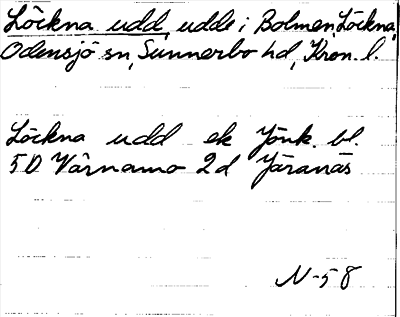 Löckna udd, udde i Bolmen, Löckna,
Odensjö sn, Sunnerbo hd, Kron. l.
Löckna udd ek Jönk. bl.
5D Värnamo 2d Järanäs
N-58